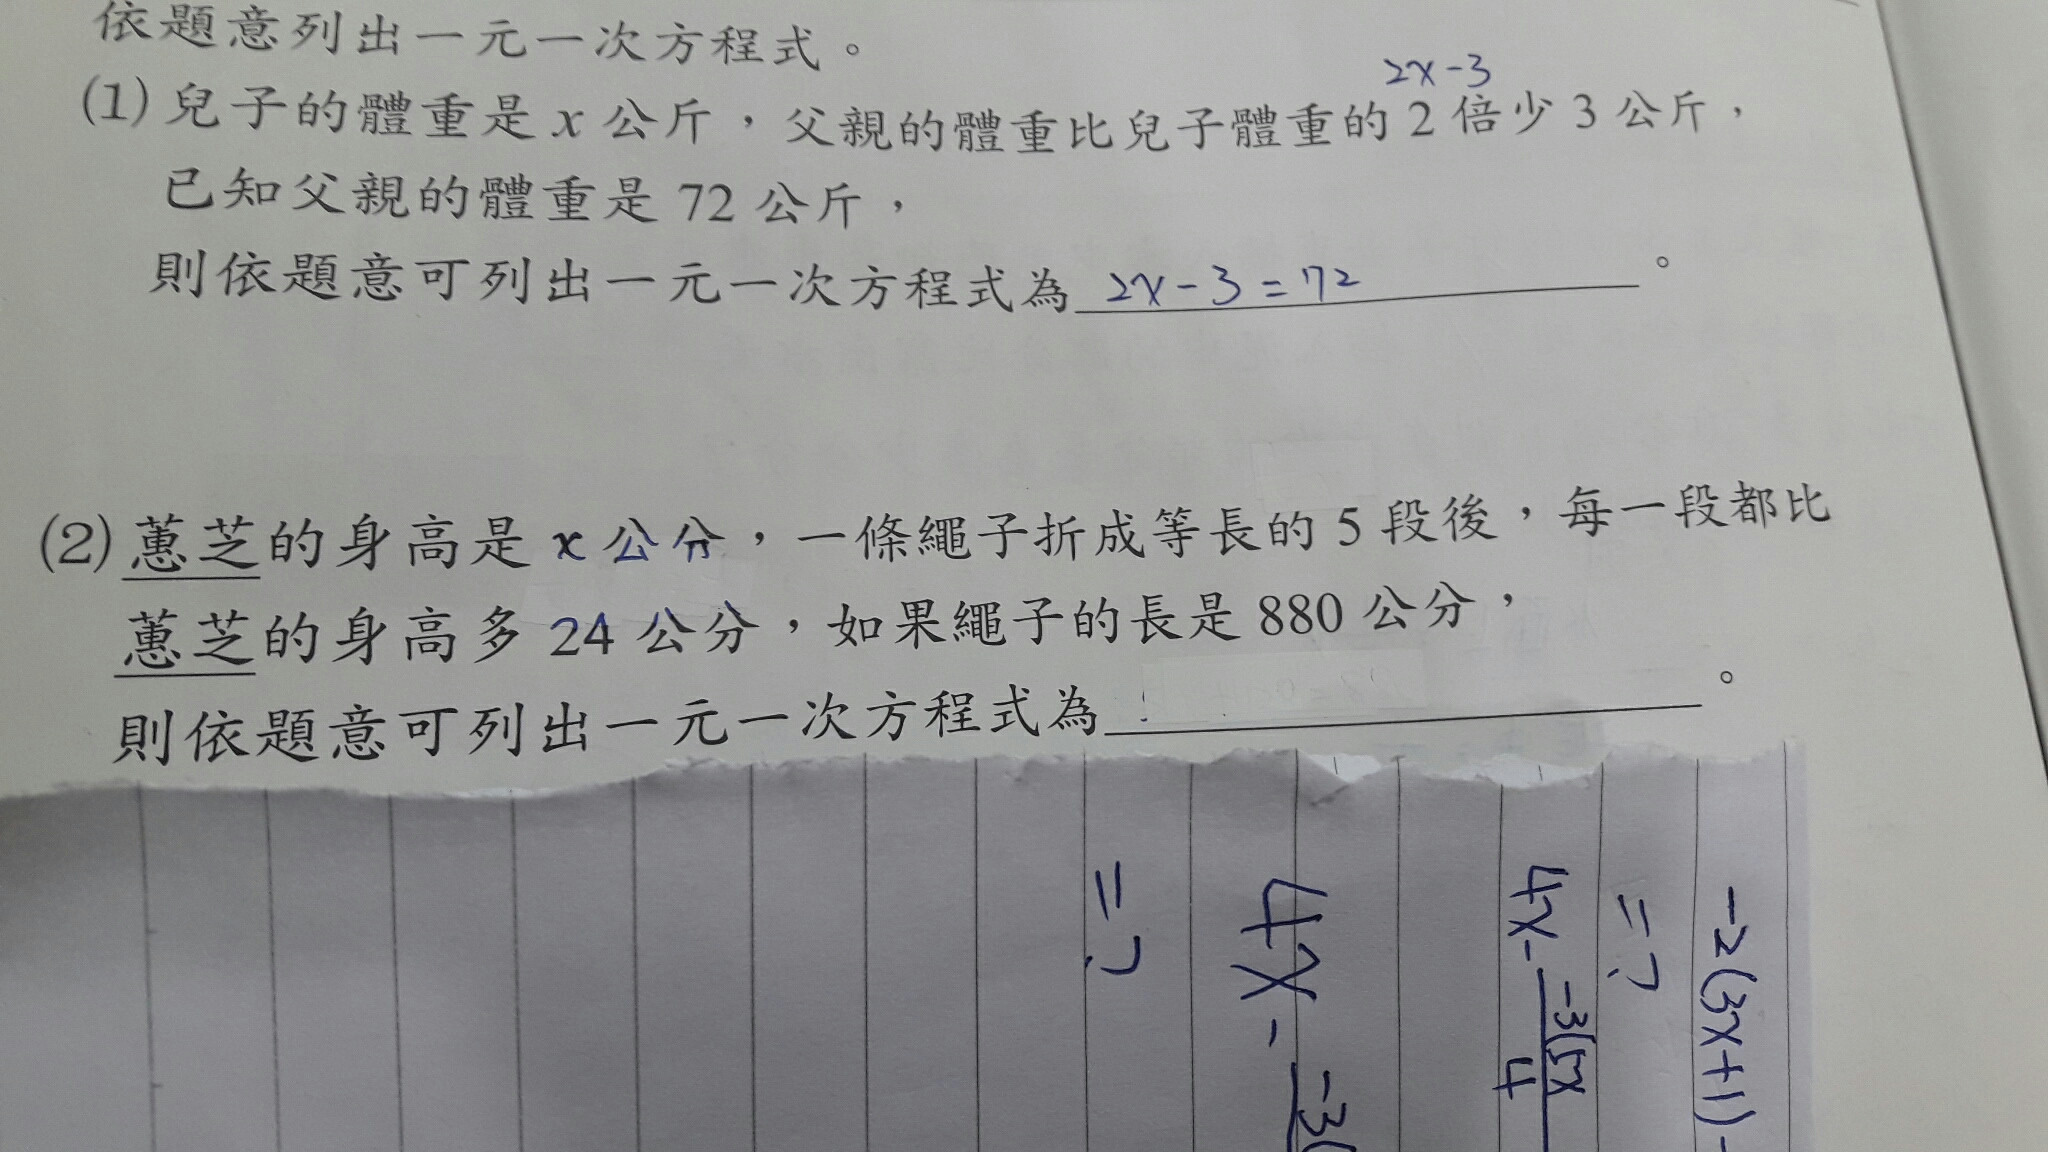 依題意列出一元一次方程式。
2x-3
(1) 兒子的體重是 x 公斤，父親的體重比兒子體重的 2 倍少 3 公斤，
已知父親的體重是 72 公斤，
則依題意可列出一元一次方程式為 2x-3=72 。
(2) 蕙芝的身高是 x 公分，一條繩子折成等長的 5 段後，每一段都比
蕙芝的身高多 24 公分，如果繩子的長是 880 公分，
則依題意可列出一元一次方程式為 。
-2(3x+1)-
=?
4x- -3(5x
4
4x- -3(
=?